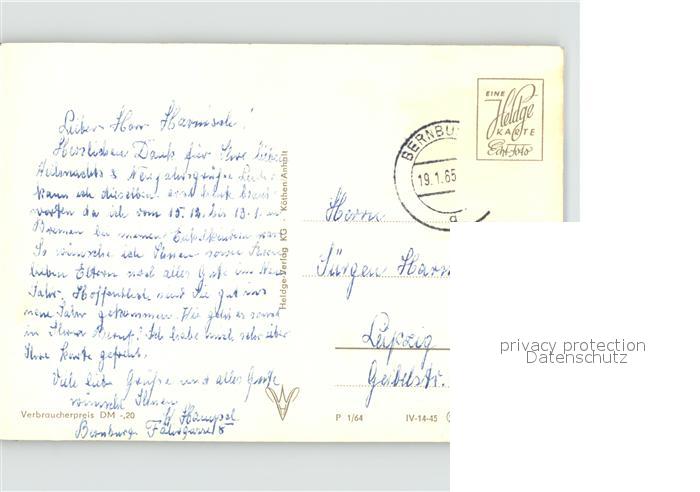 Lieber Herr Harnisch!
Herzlichen Dank für Ihre lieben
Weihnachts & Neujahrsgrüße. Leider
kann ich dieselben erst heute beant-
worten da ich vom 15.12. bis 13.1. in
Bremen bei meinen Enkelkindern war.
So wünsche ich Ihnen sowie Ihren
lieben Eltern noch alles Gute im Neuen
Jahr. Hoffentlich sind Sie gut ins
neue Jahr gekommen. Wie geht es sonst
in Ihrem Beruf? Ich habe mich sehr über
Ihre Karte gefreut.
Viele liebe Grüße und alles Gute
wünscht Ihnen
Bernburg
Verbraucherpreis DM -,20
Heldge-Verlag KG · Köthen-Anhalt
EINE
Heldge
KARTE
Echt-Foto
BERNBU
19.1.65
Herrn
Jürgen Harn
Leipzig
Geibelstr.
P 1/64 IV-14-45
privacy protection
Datenschutz